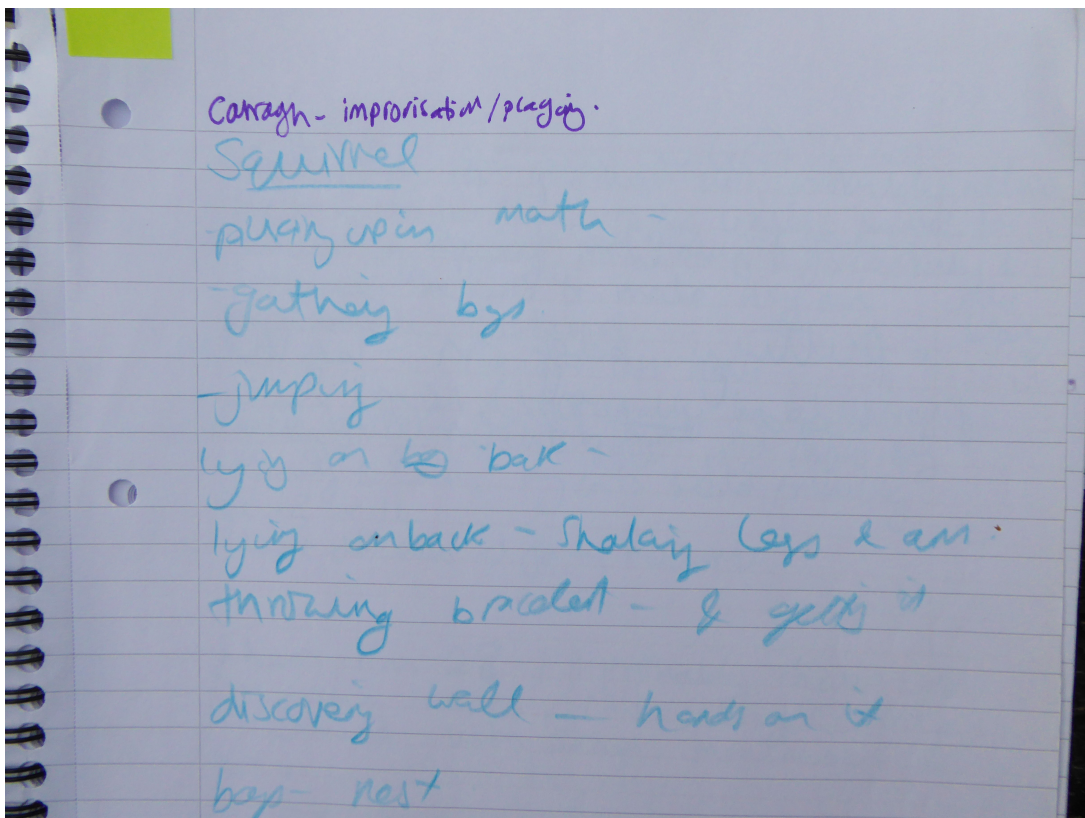 Carragh - improvisation/playing.
Squirrel
- up in mouth -
- gathering bags
- jumping
lying on back -
lying on back - shaking legs & arms.
throwing bracelet - & getting it
discovering wall — hands on it
bags - nest